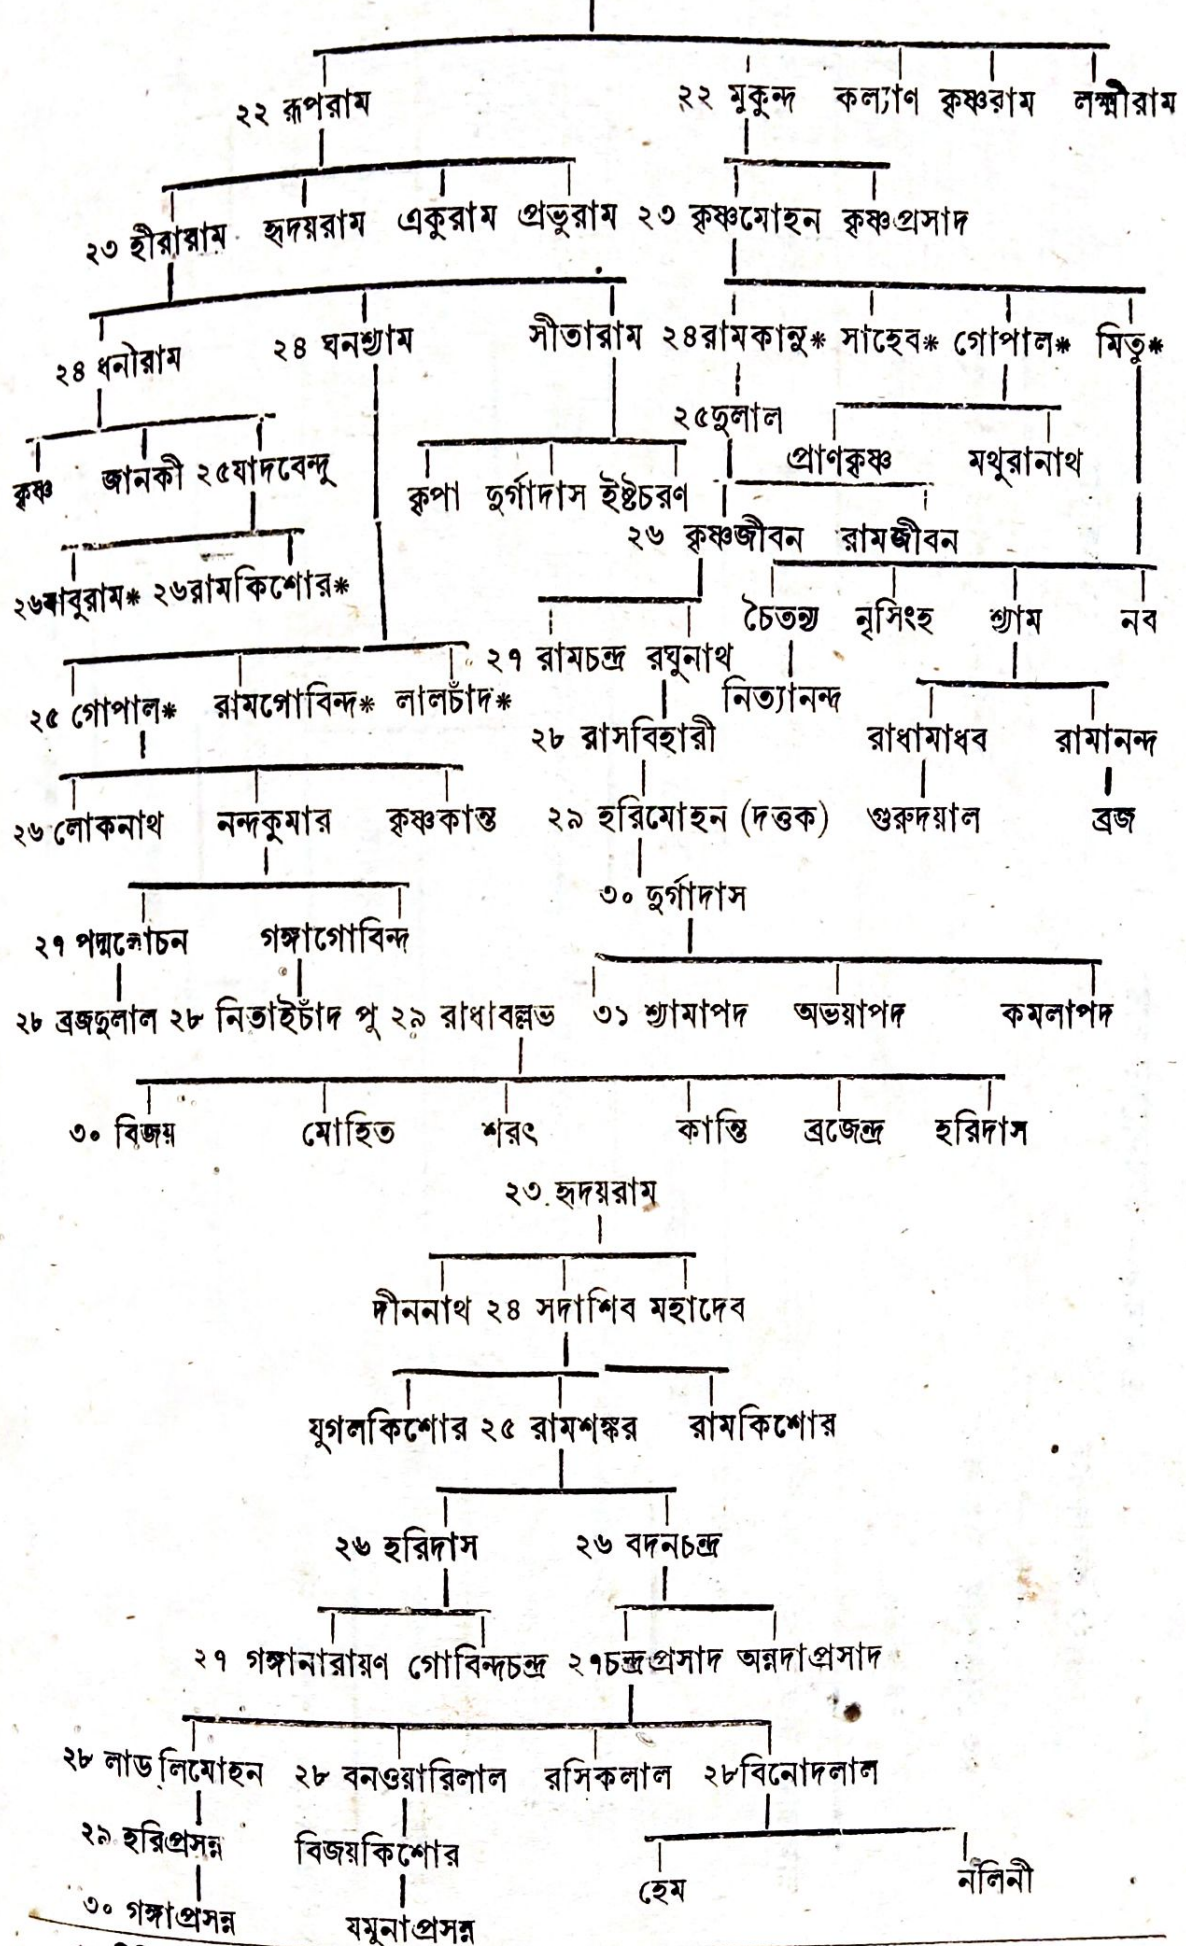 ২২ রূপরাম ২২ মুকুন্দ কল্যাণ কৃষ্ণরাম লক্ষ্মীরাম
২৩ হীরারাম হৃদয়রাম একুরাম প্রভুরাম ২৩ কৃষ্ণমোহন কৃষ্ণপ্রসাদ
২৪ ধনীরাম ২৪ ঘনশ্যাম সীতারাম ২৪রামকানু* সাহেব* গোপাল* মিতু*
২৫দুলাল
প্রাণকৃষ্ণ মথুরানাথ
কৃষ্ণ জানকী ২৫যাদবেন্দু কৃপা দুর্গাদাস ইষ্টচরণ
২৬ কৃষ্ণজীবন রামজীবন
২৬বাবুরাম* ২৬রামকিশোর* চৈতন্য নৃসিংহ শ্যাম নব
২৭ রামচন্দ্র রঘুনাথ
২৫ গোপাল* রামগোবিন্দ* লালচাঁদ* নিত্যানন্দ
২৮ রাসবিহারী রাধামাধব রামানন্দ
২৬ লোকনাথ নন্দকুমার কৃষ্ণকান্ত ২৯ হরিমোহন (দত্তক) গুরুদয়াল ব্রজ
৩০ দুর্গাদাস
২৭ পদ্মলোচন গঙ্গাগোবিন্দ
২৮ ব্রজদুলাল ২৮ নিতাইচাঁদ পু ২৯ রাধাবল্লভ ৩১ শ্যামাপদ অভয়াপদ কমলাপদ
৩০ বিজয় মোহিত শরৎ কান্তি ব্রজেন্দ্র হরিদাস
২৩. হৃদয়রাম
দীননাথ ২৪ সদাশিব মহাদেব
যুগলকিশোর ২৫ রামশঙ্কর রামকিশোর
২৬ হরিদাস ২৬ বদনচন্দ্র
২৭ গঙ্গানারায়ণ গোবিন্দচন্দ্র ২৭চন্দ্রপ্রসাদ অন্নদাপ্রসাদ
২৮ লাডলিমোহন ২৮ বনওয়ারিলাল রসিকলাল ২৮বিনোদলাল
২৯ হরিপ্রসন্ন বিজয়কিশোর হেম নলিনী
৩০ গঙ্গাপ্রসন্ন যমুনাপ্রসন্ন